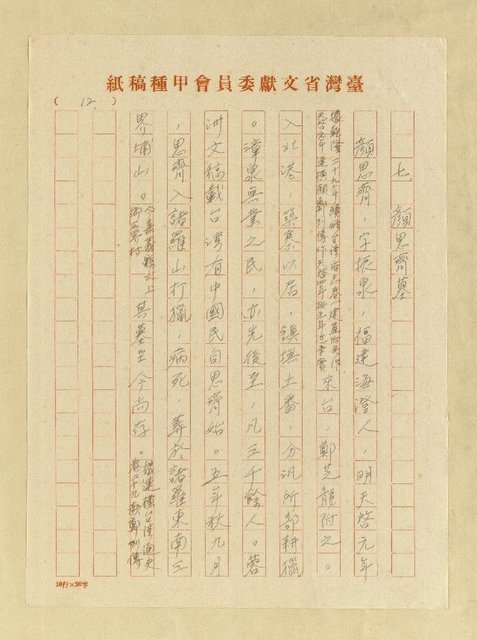 紙稿種甲會員委獻文省灣臺
( 12 )
七 顏思齊墓
顏思齊，字振泉，福建海澄人，明天啓元年
據乾隆二十九年續修台灣府志卷一建置附考作
天啓元年連橫顏鄭列傳作天啓四年按元年近事實
來台，鄭芝龍附之。
入北港，築寨以居，鎮撫土番，分汛所部耕獵
。漳泉無業之民，亦先後至，凡三千餘人。蓉
洲文稿載台灣有中國民自思齊始。五年秋九月
，思齊入諸羅山打獵，病死，葬於諸羅東南三
界埔山。
今嘉義縣水上
鄉
村
其墓至今尚存。
據連橫台灣通史
卷二十九顏鄭列傳
10行×20字